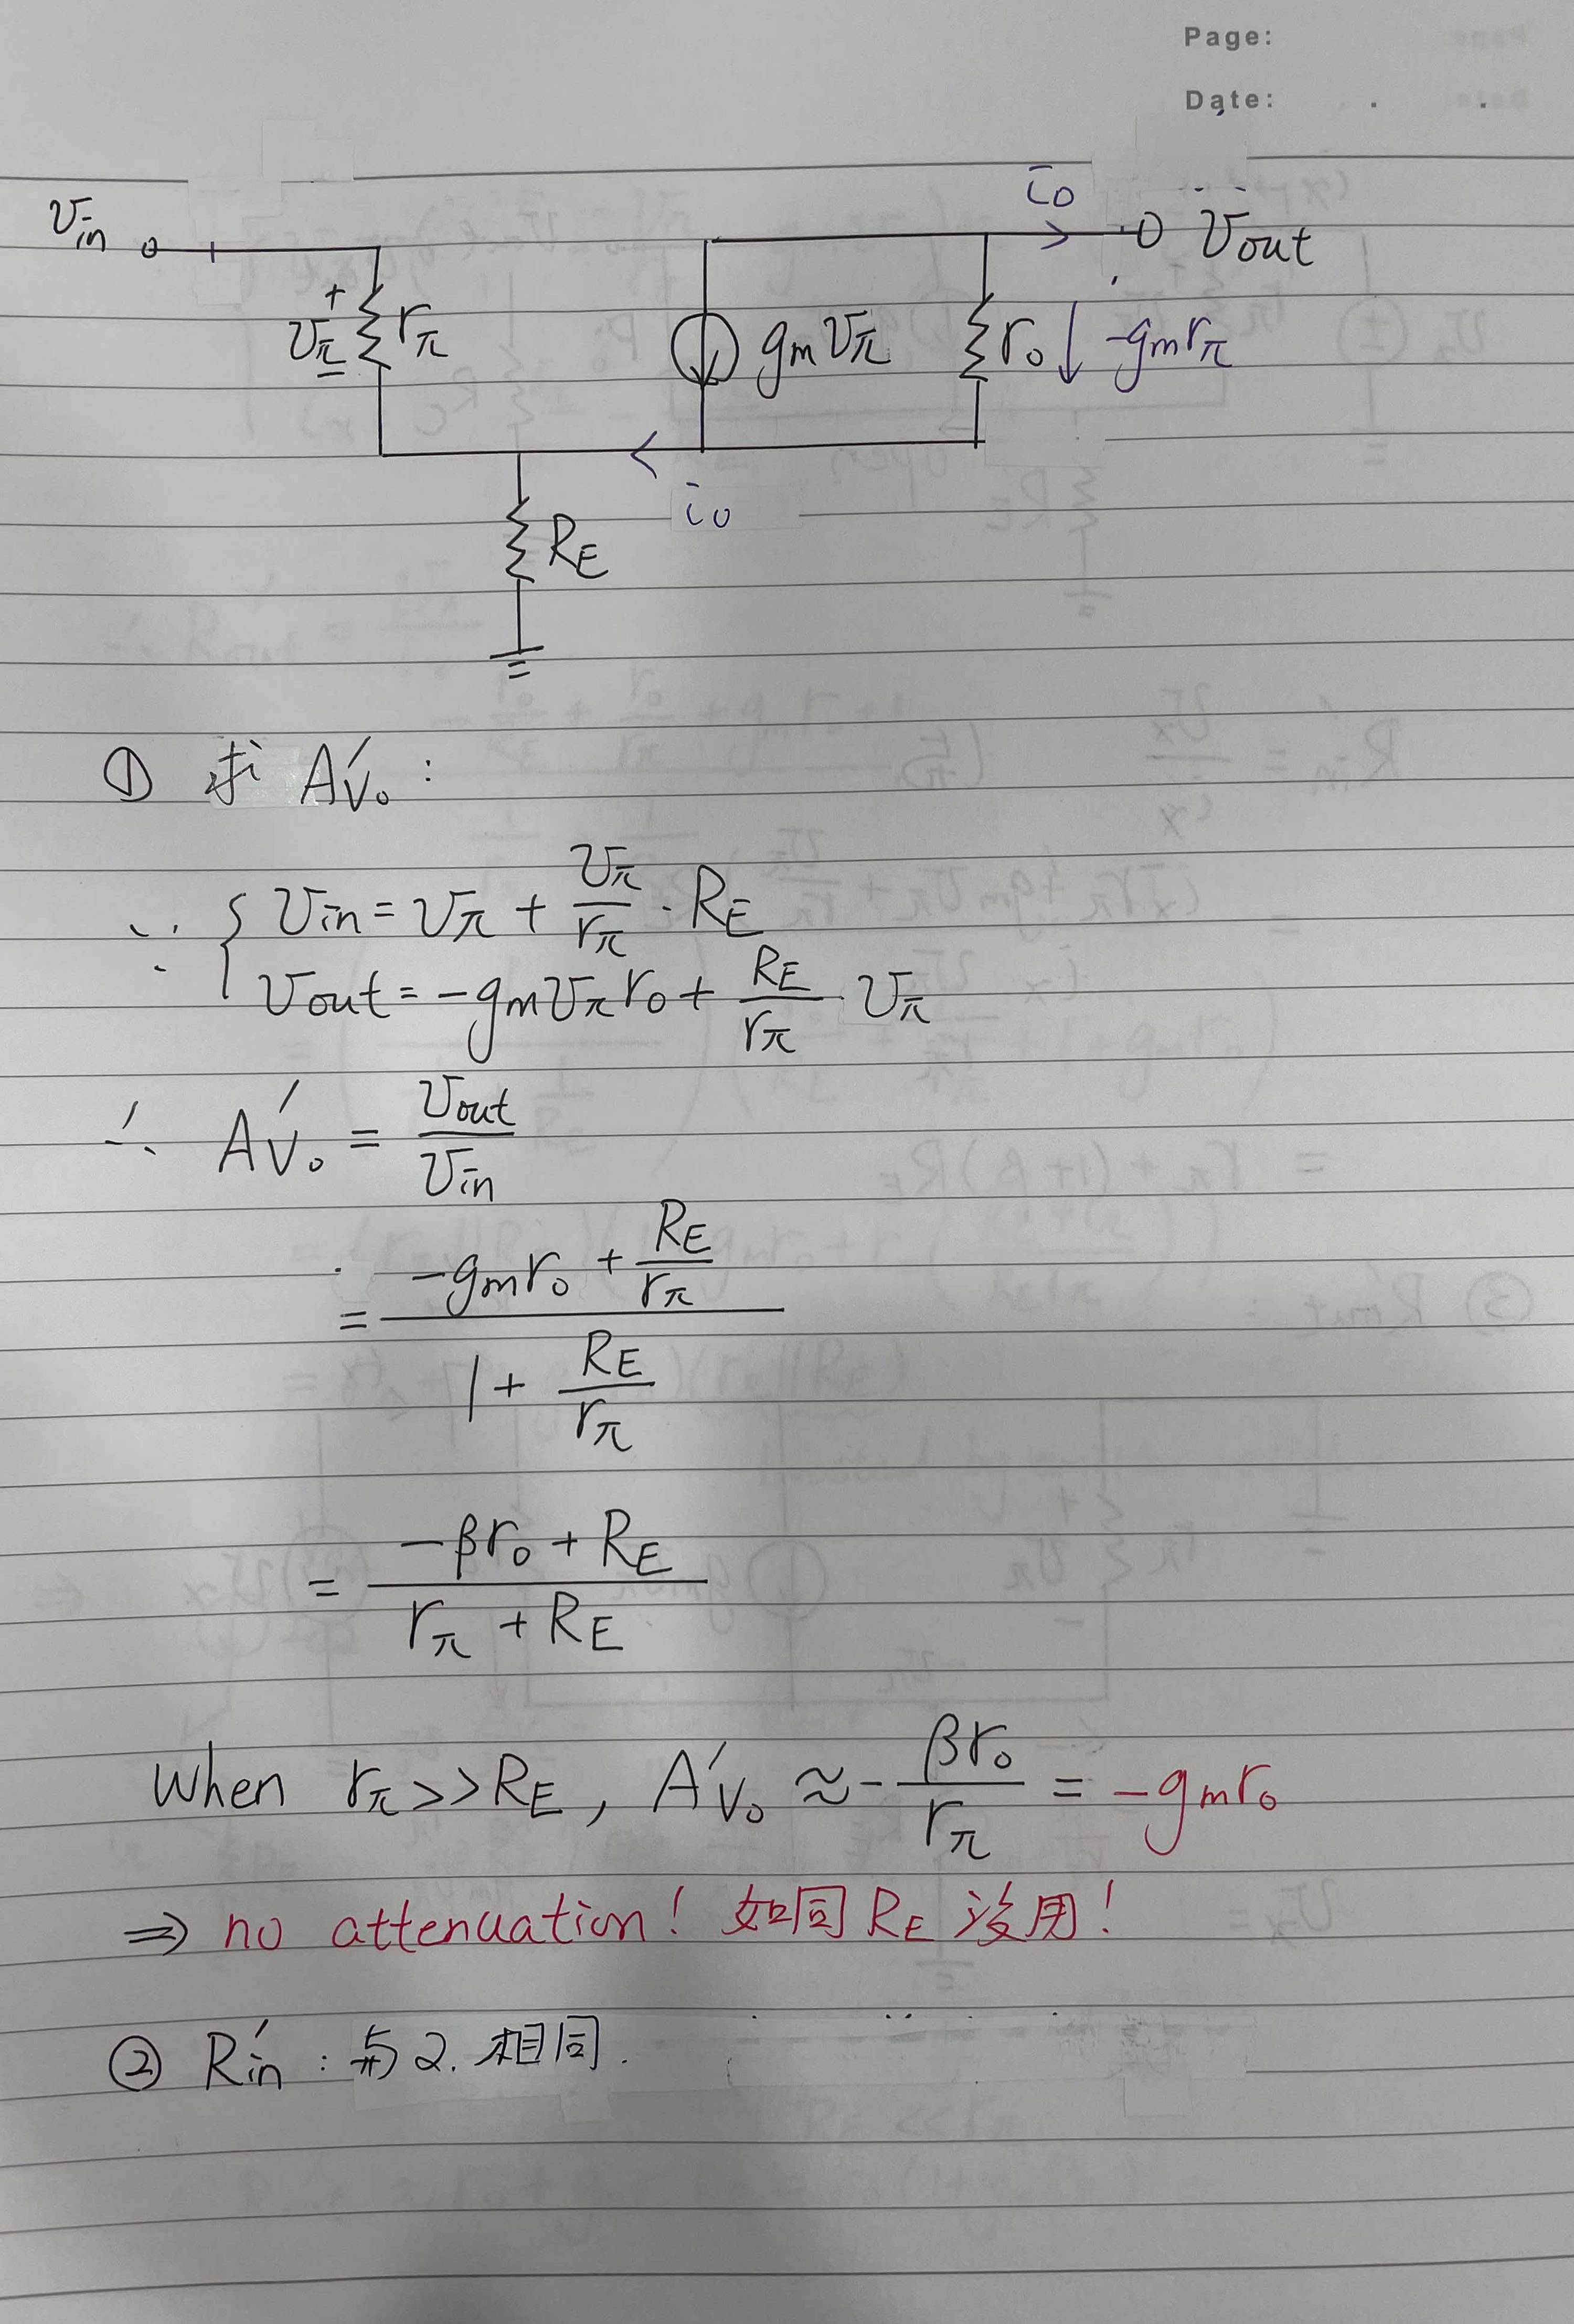 Page:
Date: . .
v_in
i_o
v_out
+
v_π
-
r_π
g_m v_π
r_o
-g_m r_π
i_o
R_E
① 求 A'v_o :
∵ { v_in = v_π + v_π/r_π · R_E
v_out = -g_m v_π r_o + R_E/r_π · v_π
∴ A'v_o = v_out/v_in
= (-g_m r_o + R_E/r_π)/(1 + R_E/r_π)
= (-βr_o + R_E)/(r_π + R_E)
When r_π >> R_E, A'v_o ≈ - βr_o/r_π = -g_m r_o
⇒ no attenuation! 如同 R_E 没用!
② R'in : 与2. 相同.